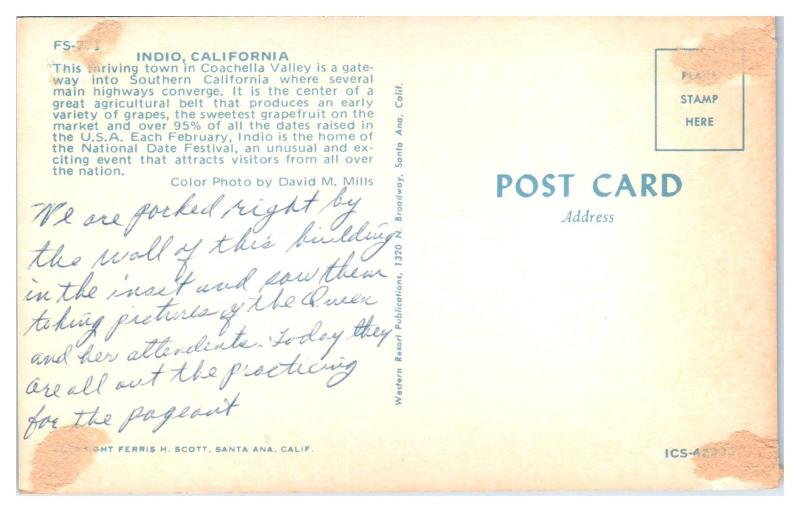 FS-7
INDIO, CALIFORNIA
This thriving town in Coachella Valley is a gate-
way into Southern California where several
main highways converge. It is the center of a
great agricultural belt that produces an early
variety of grapes, the sweetest grapefruit on the
market and over 95% of all the dates raised in
the U.S.A. Each February, Indio is the home of
the National Date Festival, an unusual and ex-
citing event that attracts visitors from all over
the nation.
Color Photo by David M. Mills
We are parked right by
the wall of this building
in the inset and saw them
taking pictures of the Queen
and her attendents. Today they
are all out the practicing
for the pageant
GHT FERRIS H. SCOTT, SANTA ANA, CALIF.
Western Resort Publications, 1320 N. Broadway, Santa Ana, Calif.
PLACE
STAMP
HERE
POST CARD
Address
ICS-42